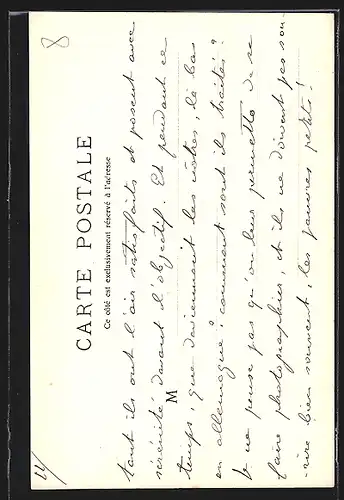 8
CARTE POSTALE
Ce côté est exclusivement réservé à l'adresse
M
tant ils ont l'air satisfaits et posent avec
sérénité devant l'objectif. Et pendant ce
temps, que deviennent les nôtres, là bas
en allemagne? comment sont ils traités?
Je ne pense pas qu'on leur permette de se
faire photographier, et ils ne doivent pas sou-
-rire bien souvent, les pauvres petits!